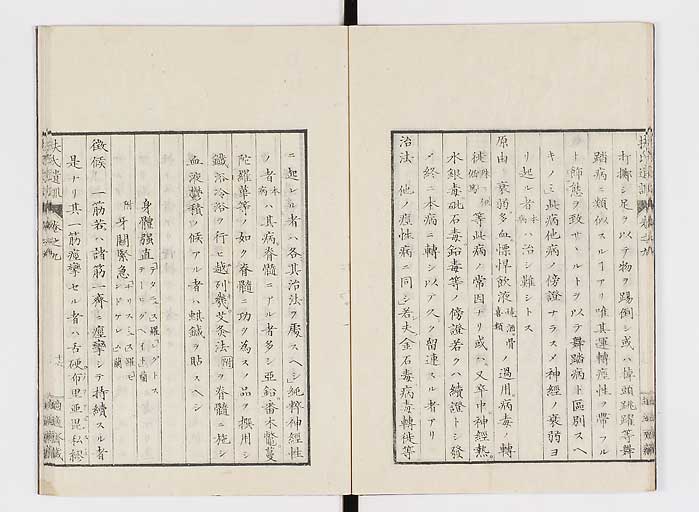 打擲シ足ヲ以テ物ヲ踢倒シ或ハ掉頭跳躍等舞
踏病ニ類似スルアリ唯其運轉痙性ヲ帶フル
ト飾態ヲ致サヽルトヲ以テ舞踏病ト區別スヘ
キノミ此病他病ノ傍證ナラスメ神經ノ衰弱ヨ
リ起ル者本病ハ治シ難シトス
原由 衰弱多血慓悍飲液燒酒骨喜類ノ過用病毒ノ轉
徙等此病ノ常因ナリ或ハ又卒中神經熱
水銀毒砒石毒鉛毒等ノ傍證若クハ續證トシ發
メ終ニ本病ニ轉シ以テ久ク留連スル者アリ
治法 他ノ痙性病ニ同シ若夫金石毒病毒轉徙等
ニ起レル者ハ各其治法ヲ處スヘシ純粹神經性
ノ者本病ハ其病脊髓ニアル者多シ亞鉛番木鼈蔓
陀羅華等ノ如ク脊髓ニ功ヲ為スノ品ヲ撰用シ
鐵浴冷浴ヲ行ヒ越列幾艾灸法附ヲ脊髓ニ施シ
血液鬱積ノ候アル者ハ蜞鍼ヲ貼スヘシ
身體強直
附 牙關緊急
徴候 一筋若ハ諸筋一齊ニ痙攣シテ持續スル者
是ナリ其一筋痙攣セル者ハ舌硬布里亞毘私繆
扶氏遺訓 卷之九
十六